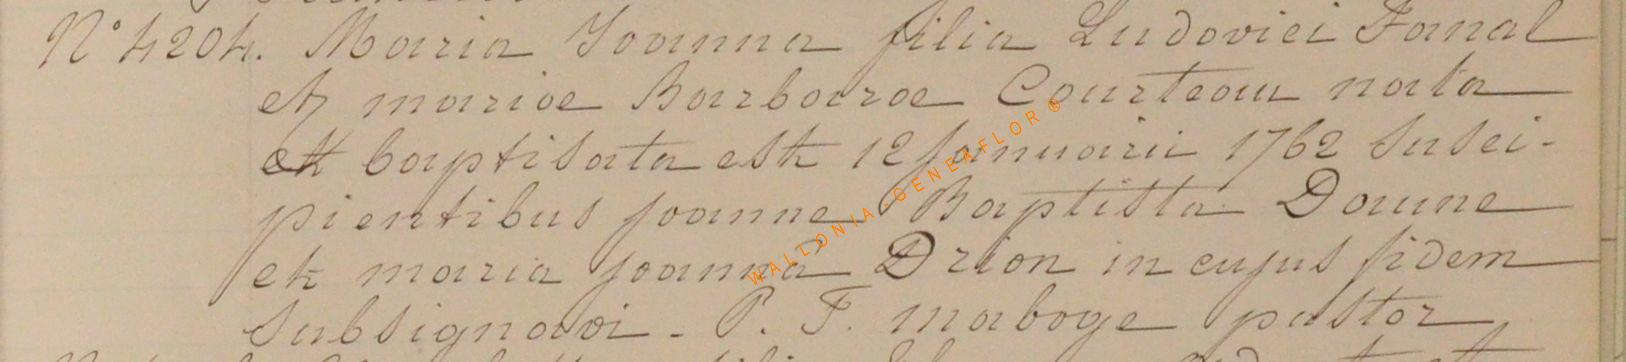 N° 4204. Maria Joanna filia Ludovici Fanal
et mariae Barbarae Courteau nata
et baptisata est 12 januarii 1762 susci-
pientibus joanne Baptista Daune
et maria joanna Drion in cujus fidem
subsignavi - P. F. maboge pastor
WALLONIA-GENEAFLOR®